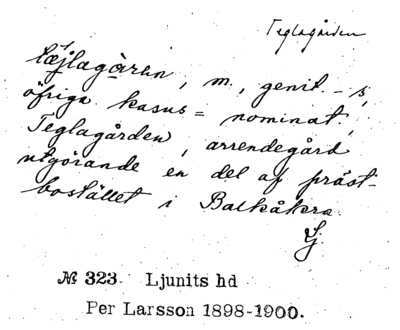 Teglagården
tæjlagàrɘn, m., genit. -s,
öfriga kasus = nominat.,
Teglagården, arrendegård
utgörande en del af präst-
bostället i Balkåkra.
№ 323. Ljunits hd
Per Larsson 1898-1900.